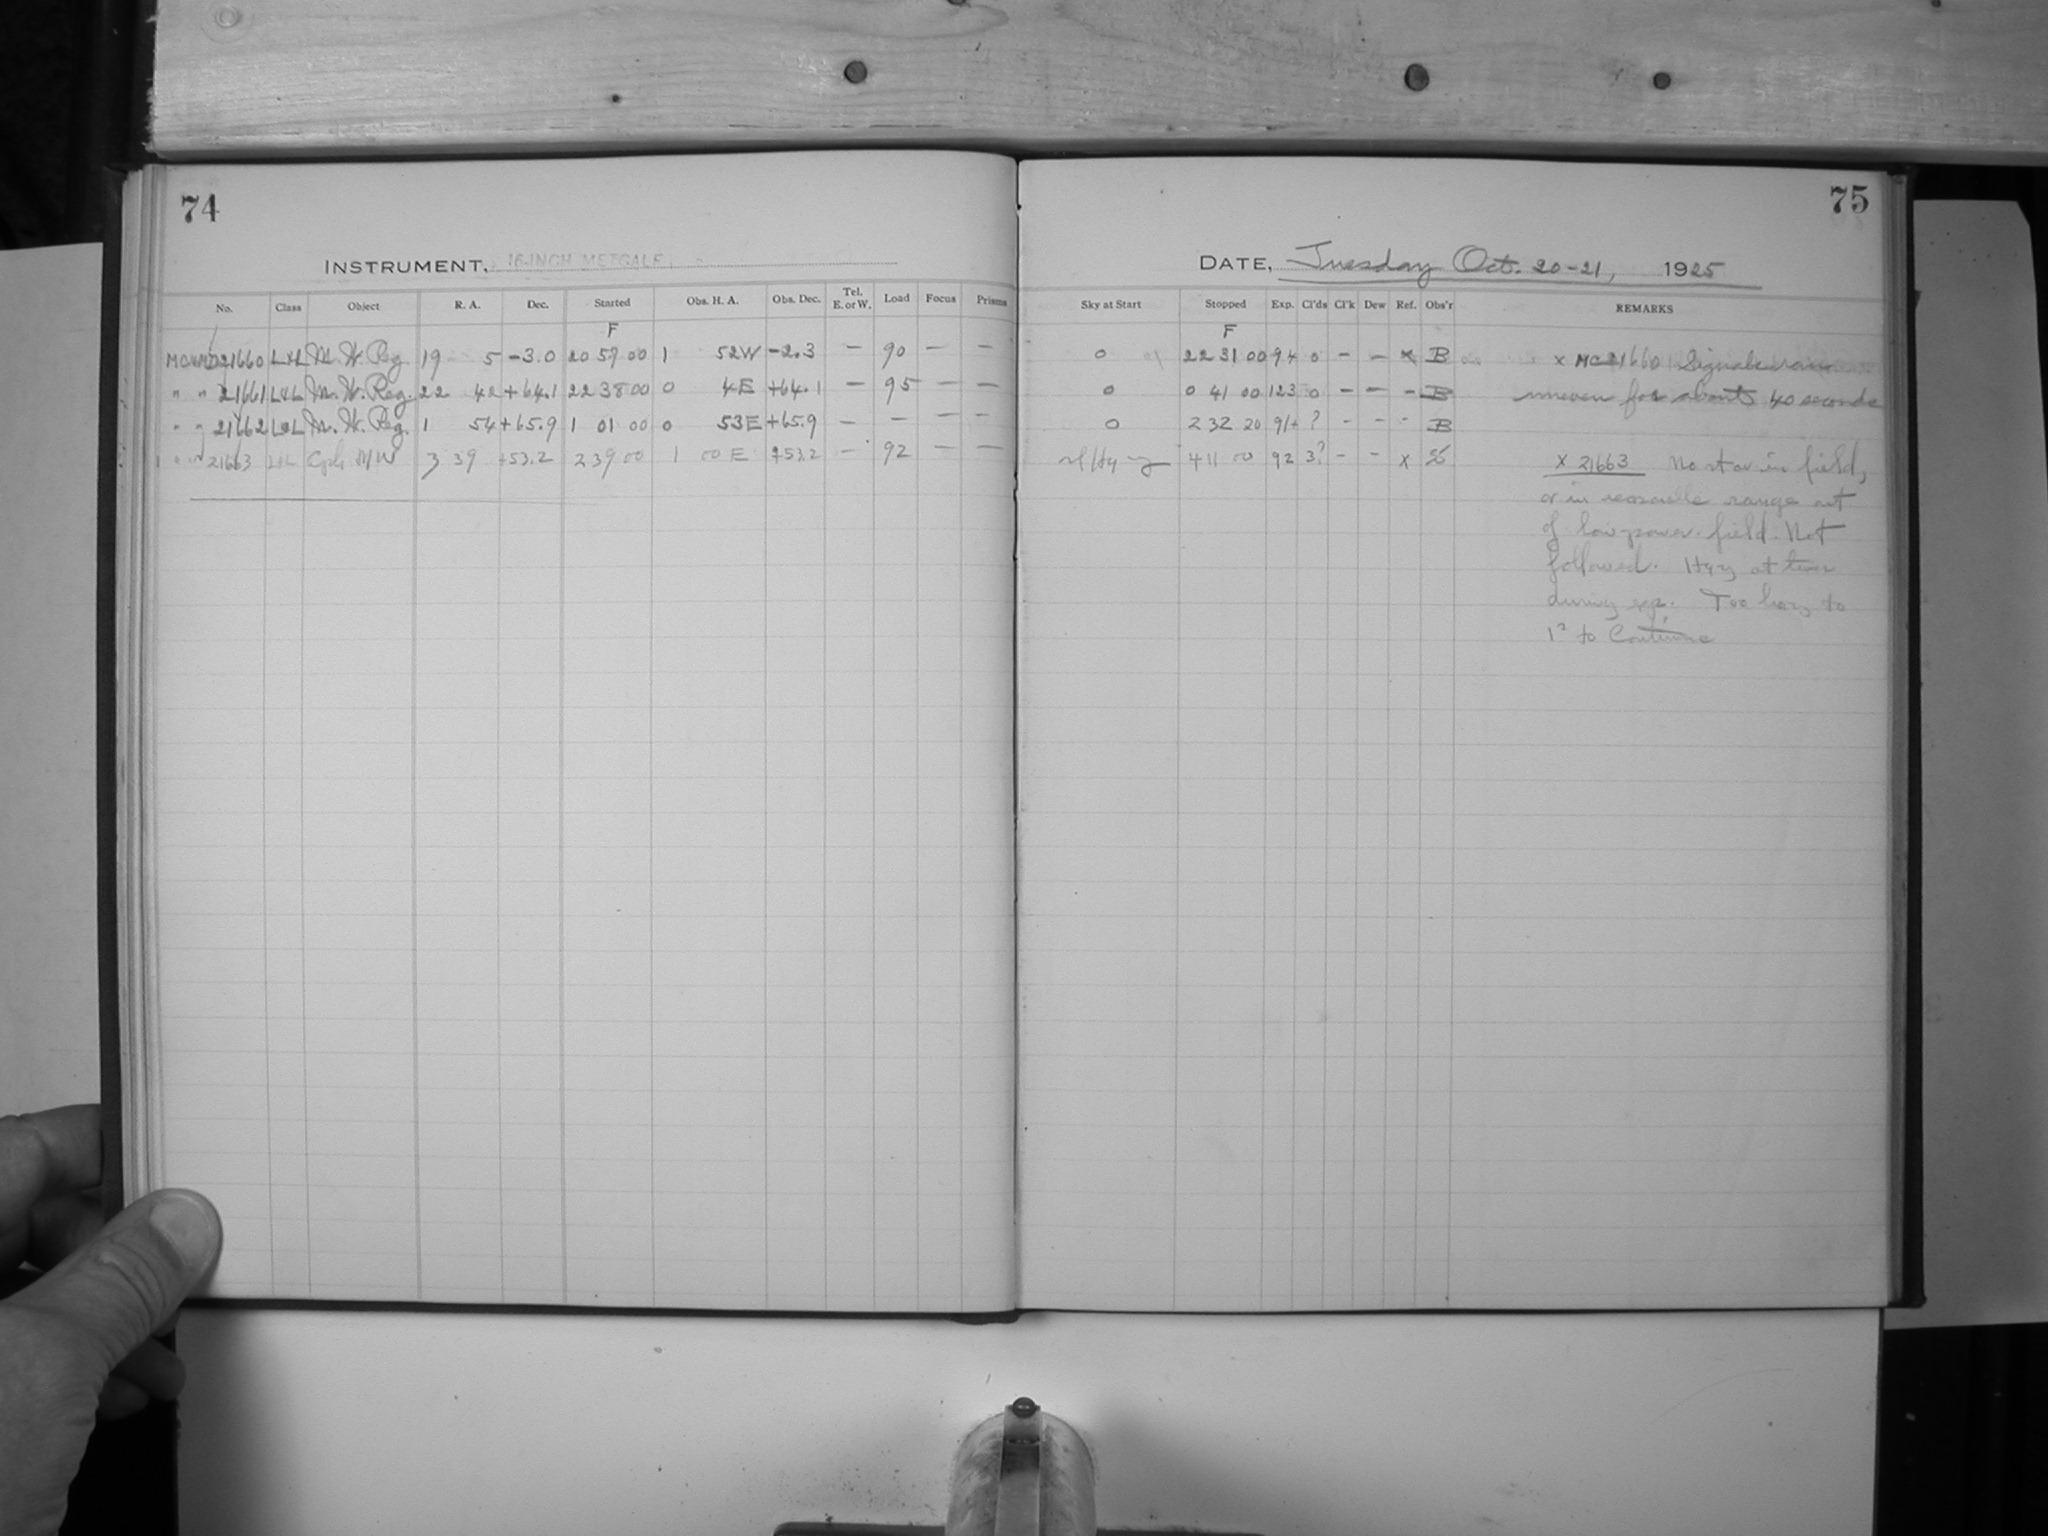 74
INSTRUMENT, 16-INCH METCALF
No. Class Object R. A. Dec. Started Obs. H. A. Obs. Dec. Tel. E. or W. Load Focus Prisms
F
21660 M. W. Reg. 19 5 -3.0 20 57 00 1 52W -2.3 — 90 — —
" " 21661 M. W. Reg. 22 42 +64.1 22 38 00 0 4E +64.1 — 95 — —
" " 21662 M. W. Reg. 1 54 +65.9 1 01 00 0 53E +65.9 — — — —
" " 21663 3 39 +53.2 2 39 00 1 00 E +53.2 — 92 — —
75
DATE, Tuesday Oct. 20-21, 1925
Sky at Start Stopped Exp. Cl'ds Cl'k Dew Ref. Obs'r REMARKS
F
0 22 31 00 94 0 — — x B x MC 21660 Signals ran
0 0 41 00 123 0 — — — B uneven for about 40 seconds
0 2 32 20 91+ ? - - - B
4 11 00 92 3? — — x x 21663 No star in field,
or in reasonable range out
of low-power field. Not
followed. Hazy at times
during exp. Too hazy to
to Continue